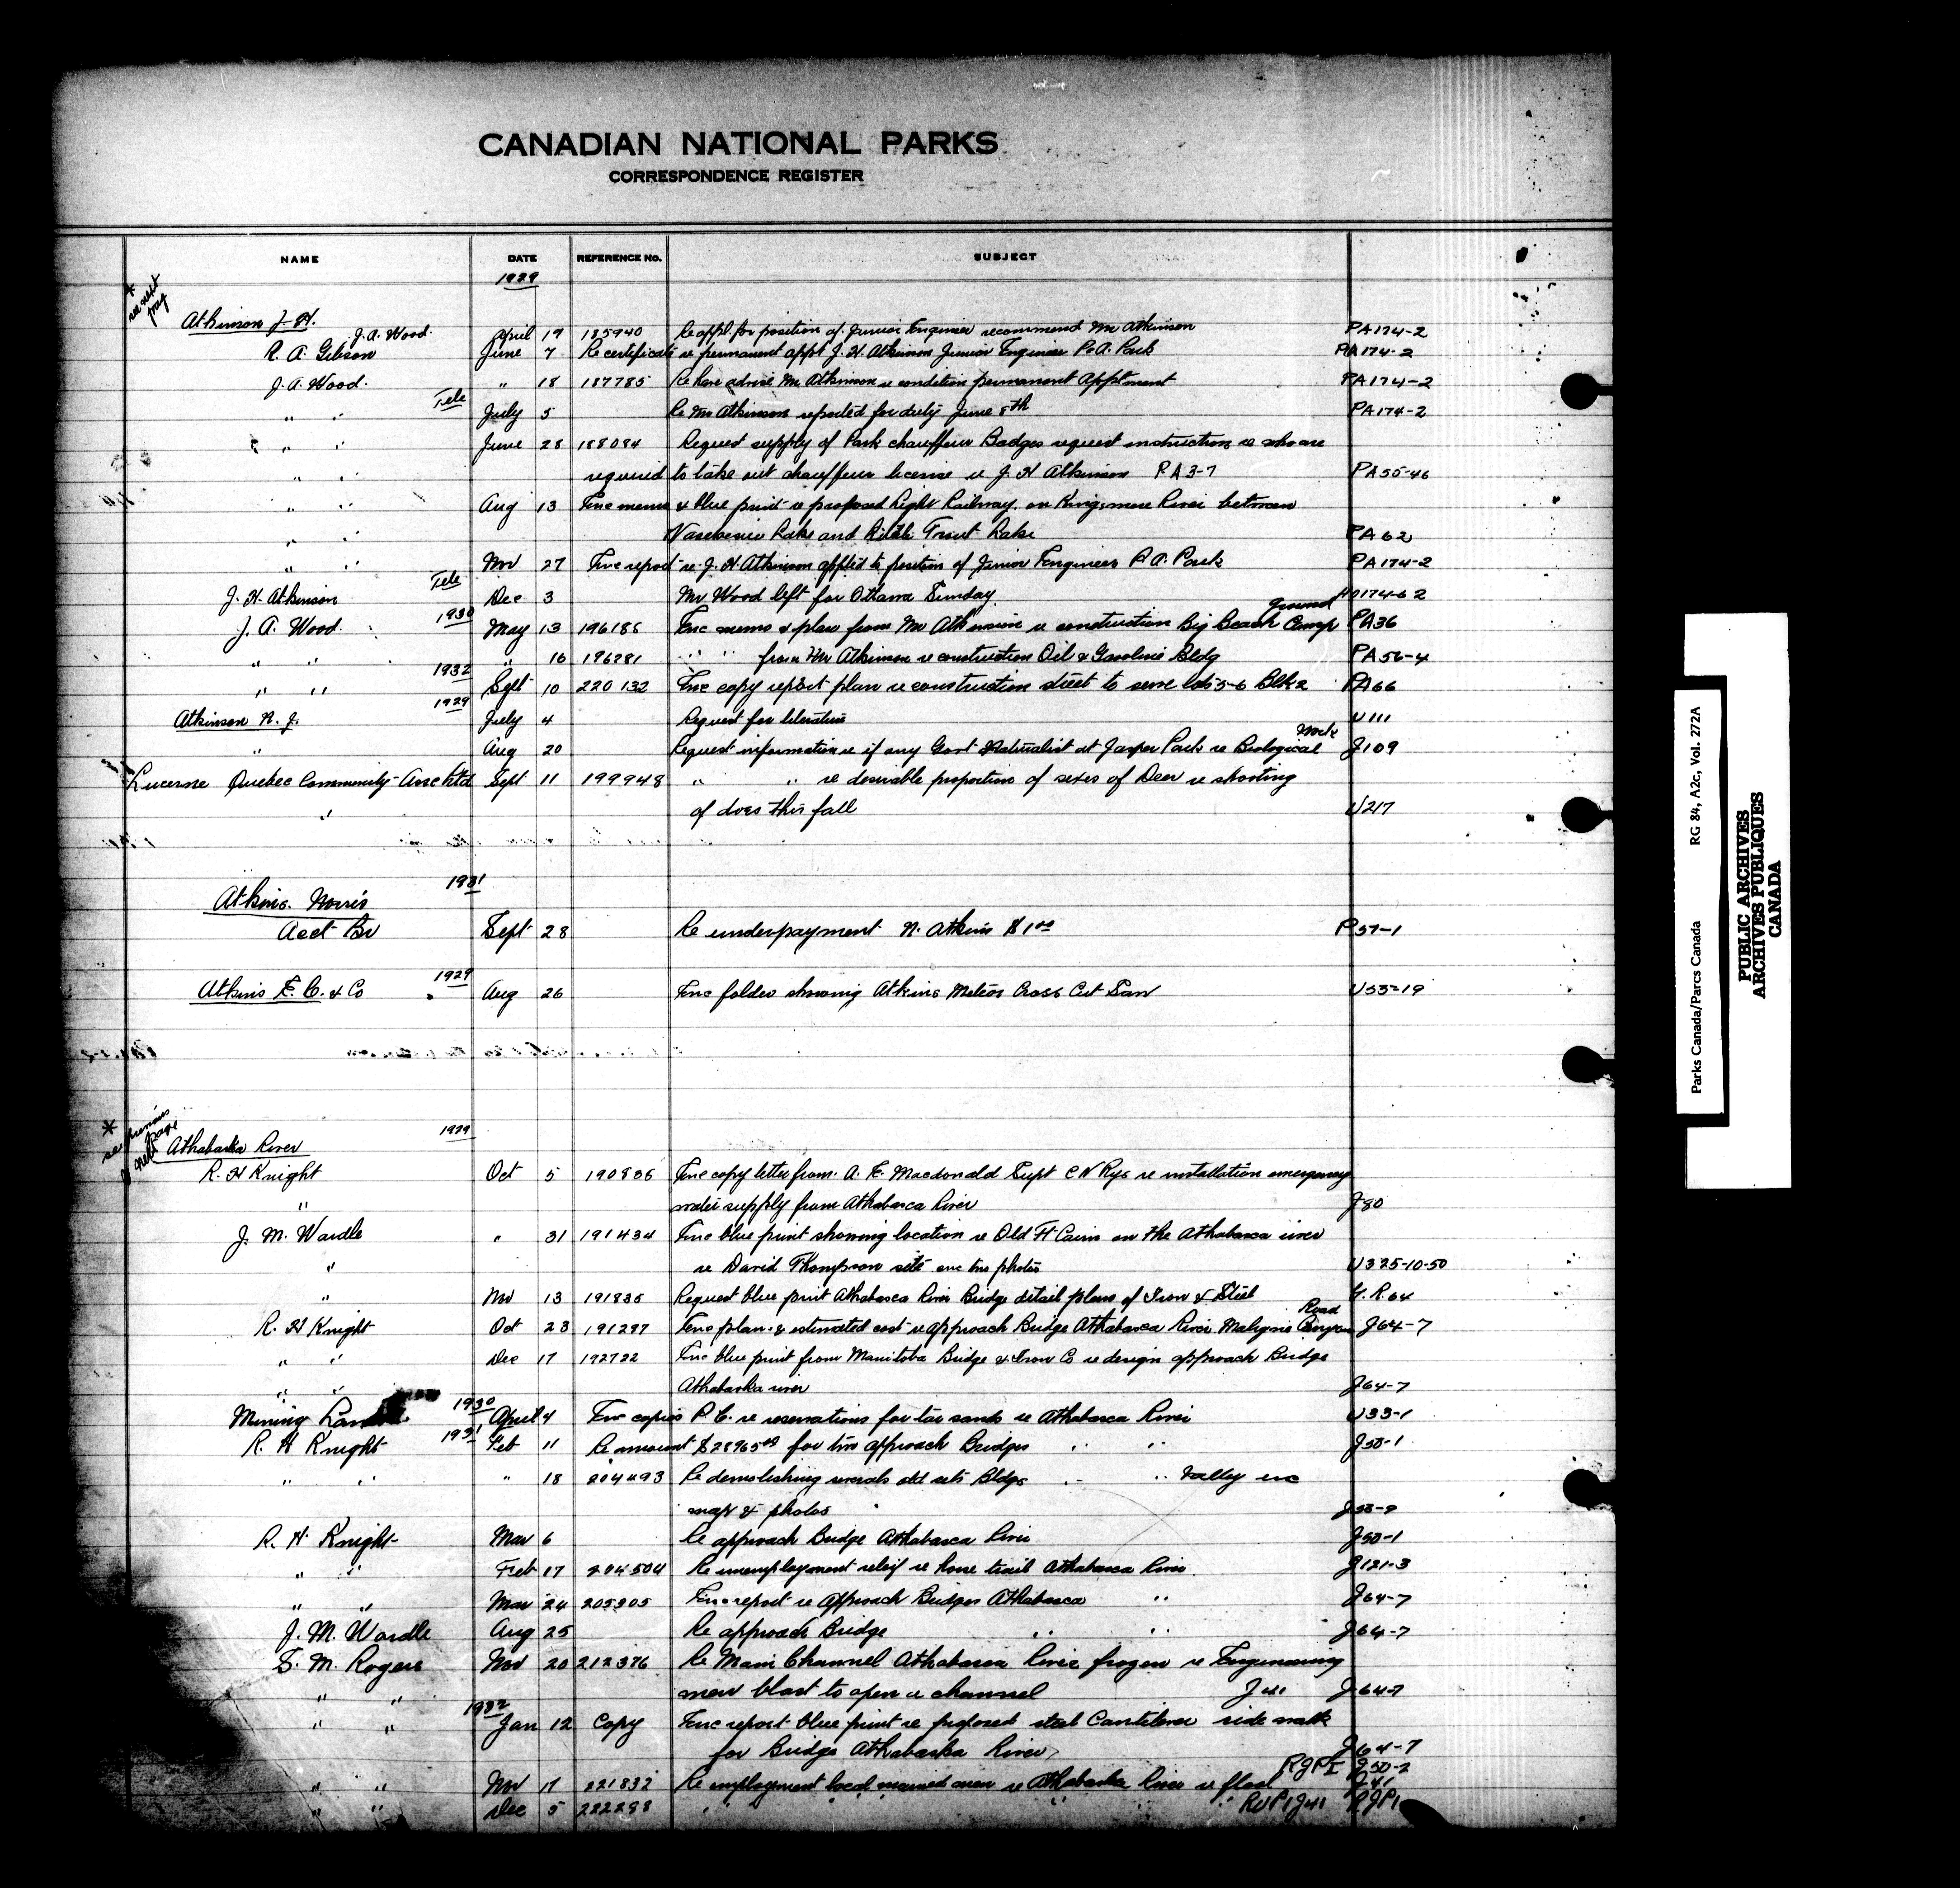 CANADIAN NATIONAL PARKS
CORRESPONDENCE REGISTER
NAME DATE REFERENCE No. SUBJECT
1929
* see next page
Atkinson J. H.
J.A. Wood. April 19 185940 Re appl. for position of Junior Engineer recommend Mr Atkinson PA174-2
R. A. Gibson June 7 Re certificate re permanent appt J. H. Atkinson Junior Engineer P.A. Park PA174-2
J.A. Wood. " 18 187785 Re have advise Mr Atkinson re condition permanent Apptment PA174-2
" " Tele July 5 Re Mr Atkinson reported for duty June 8th PA174-2
" " June 28 188084 Request supply of Park chauffeur Badges request instructions re who are
" " required to take out chauffeur license re J. H Atkinson P.A 3-7 PA55-46
" " Aug 13 Enc memo & blue print re proposed Light Railway on Kingsmere River between
" " Lake and Little Trout Lake PA62
" " Nov 27 Enc report re J. H. Atkinson applied to position of Junior Engineer P.A. Park PA174-2
J. H. Atkinson Tele Dec 3 Mr Wood left for Ottawa Sunday 174-62
J. A. Wood. 1930 May 13 196186 Enc memo & plan from Mr Atkinson re construction Big Beach Camp ground PA36
" " " 16 196281 " " from Mr Atkinson re construction Oil & Gasoline Bldg PA56-4
" " 1932 Sept 10 220132 Enc copy report plan re construction street to serve lots 5-6 Blk 2 PA66
Atkinson N. J. 1929 July 4 Request for literature U111
" Aug 20 Request information re if any Govt Naturalist at Jasper Park re Biological Work J109
Lucerne Quebec Community Assc Ltd Sept 11 199948 " " re desirable proportion of sexes of Deer re shooting
" of does this fall U217
Atkins. Norris 1931
Acct Br Sept 28 Re underpayment N. Atkins $1.00 P57-1
Atkins E. C. & Co 1929 Aug 26 Enc folder showing Atkins Meteor Cross Cut Saw U53-19
* see previous & next page
Athabaska River 1929
R. H Knight Oct 5 190836 Enc copy letter from. A. E. Macdonald Supt C N Rys re installation emergency
" water supply from Athabasca River J80
J. M. Wardle " 31 191434 Enc blue print showing location re Old Ft Cairn on the Athabasca river
" re David Thompson site enc two photos U325-10-50
" Nov 13 191835 Request blue print Athabasca River Bridge detail plans of Iron & Steel G.R64
R. H Knight Oct 23 191297 Enc plan & estimated cost re approach Bridge Athabasca River Maligne Canyon Road J64-7
" " Dec 17 192722 Enc blue print from Manitoba Bridge & Iron Co re design approach Bridge
" " Athabaska river J64-7
Mining Lands 1930 April 4 Enc copies P.C. re reservations for tar sands re Athabasca River U33-1
R. H Knight 1931 Feb 11 Re amount $28965.00 for two approach Bridges " " J50-1
" " " 18 204493 Re demolishing several old sets Bldgs " " Valley enc
map & photos
R. H. Knight Mar 6 Re approach Bridge Athabasca River J50-1
" " Feb 17 204504 Re unemployment relief re horse trail Athabasca River J121-3
" " Mar 24 205305 Enc report re Approach Bridges Athabasca " J64-7
J. M. Wardle Aug 25 Re approach Bridge " " J64-7
S. M. Rogers Nov 20 212376 Re Main Channel Athabasca River frozen re Engineering
" " men blast to open a channel J41 J64-7
" " 1932 Jan 12 Copy Enc report blue print re proposed steel Cantilever side walk
for Bridge Athabaska River J64-7
" " Nov 17 221832 Re employment local married men re Athabaska River re flood RJP1 J50-2 J41
" " Dec 5 222298 " " " " " RUP1 J41 RJP1
Parks Canada/Parcs Canada RG 84, A2c, Vol. 272A
PUBLIC ARCHIVES
ARCHIVES PUBLIQUES
CANADA